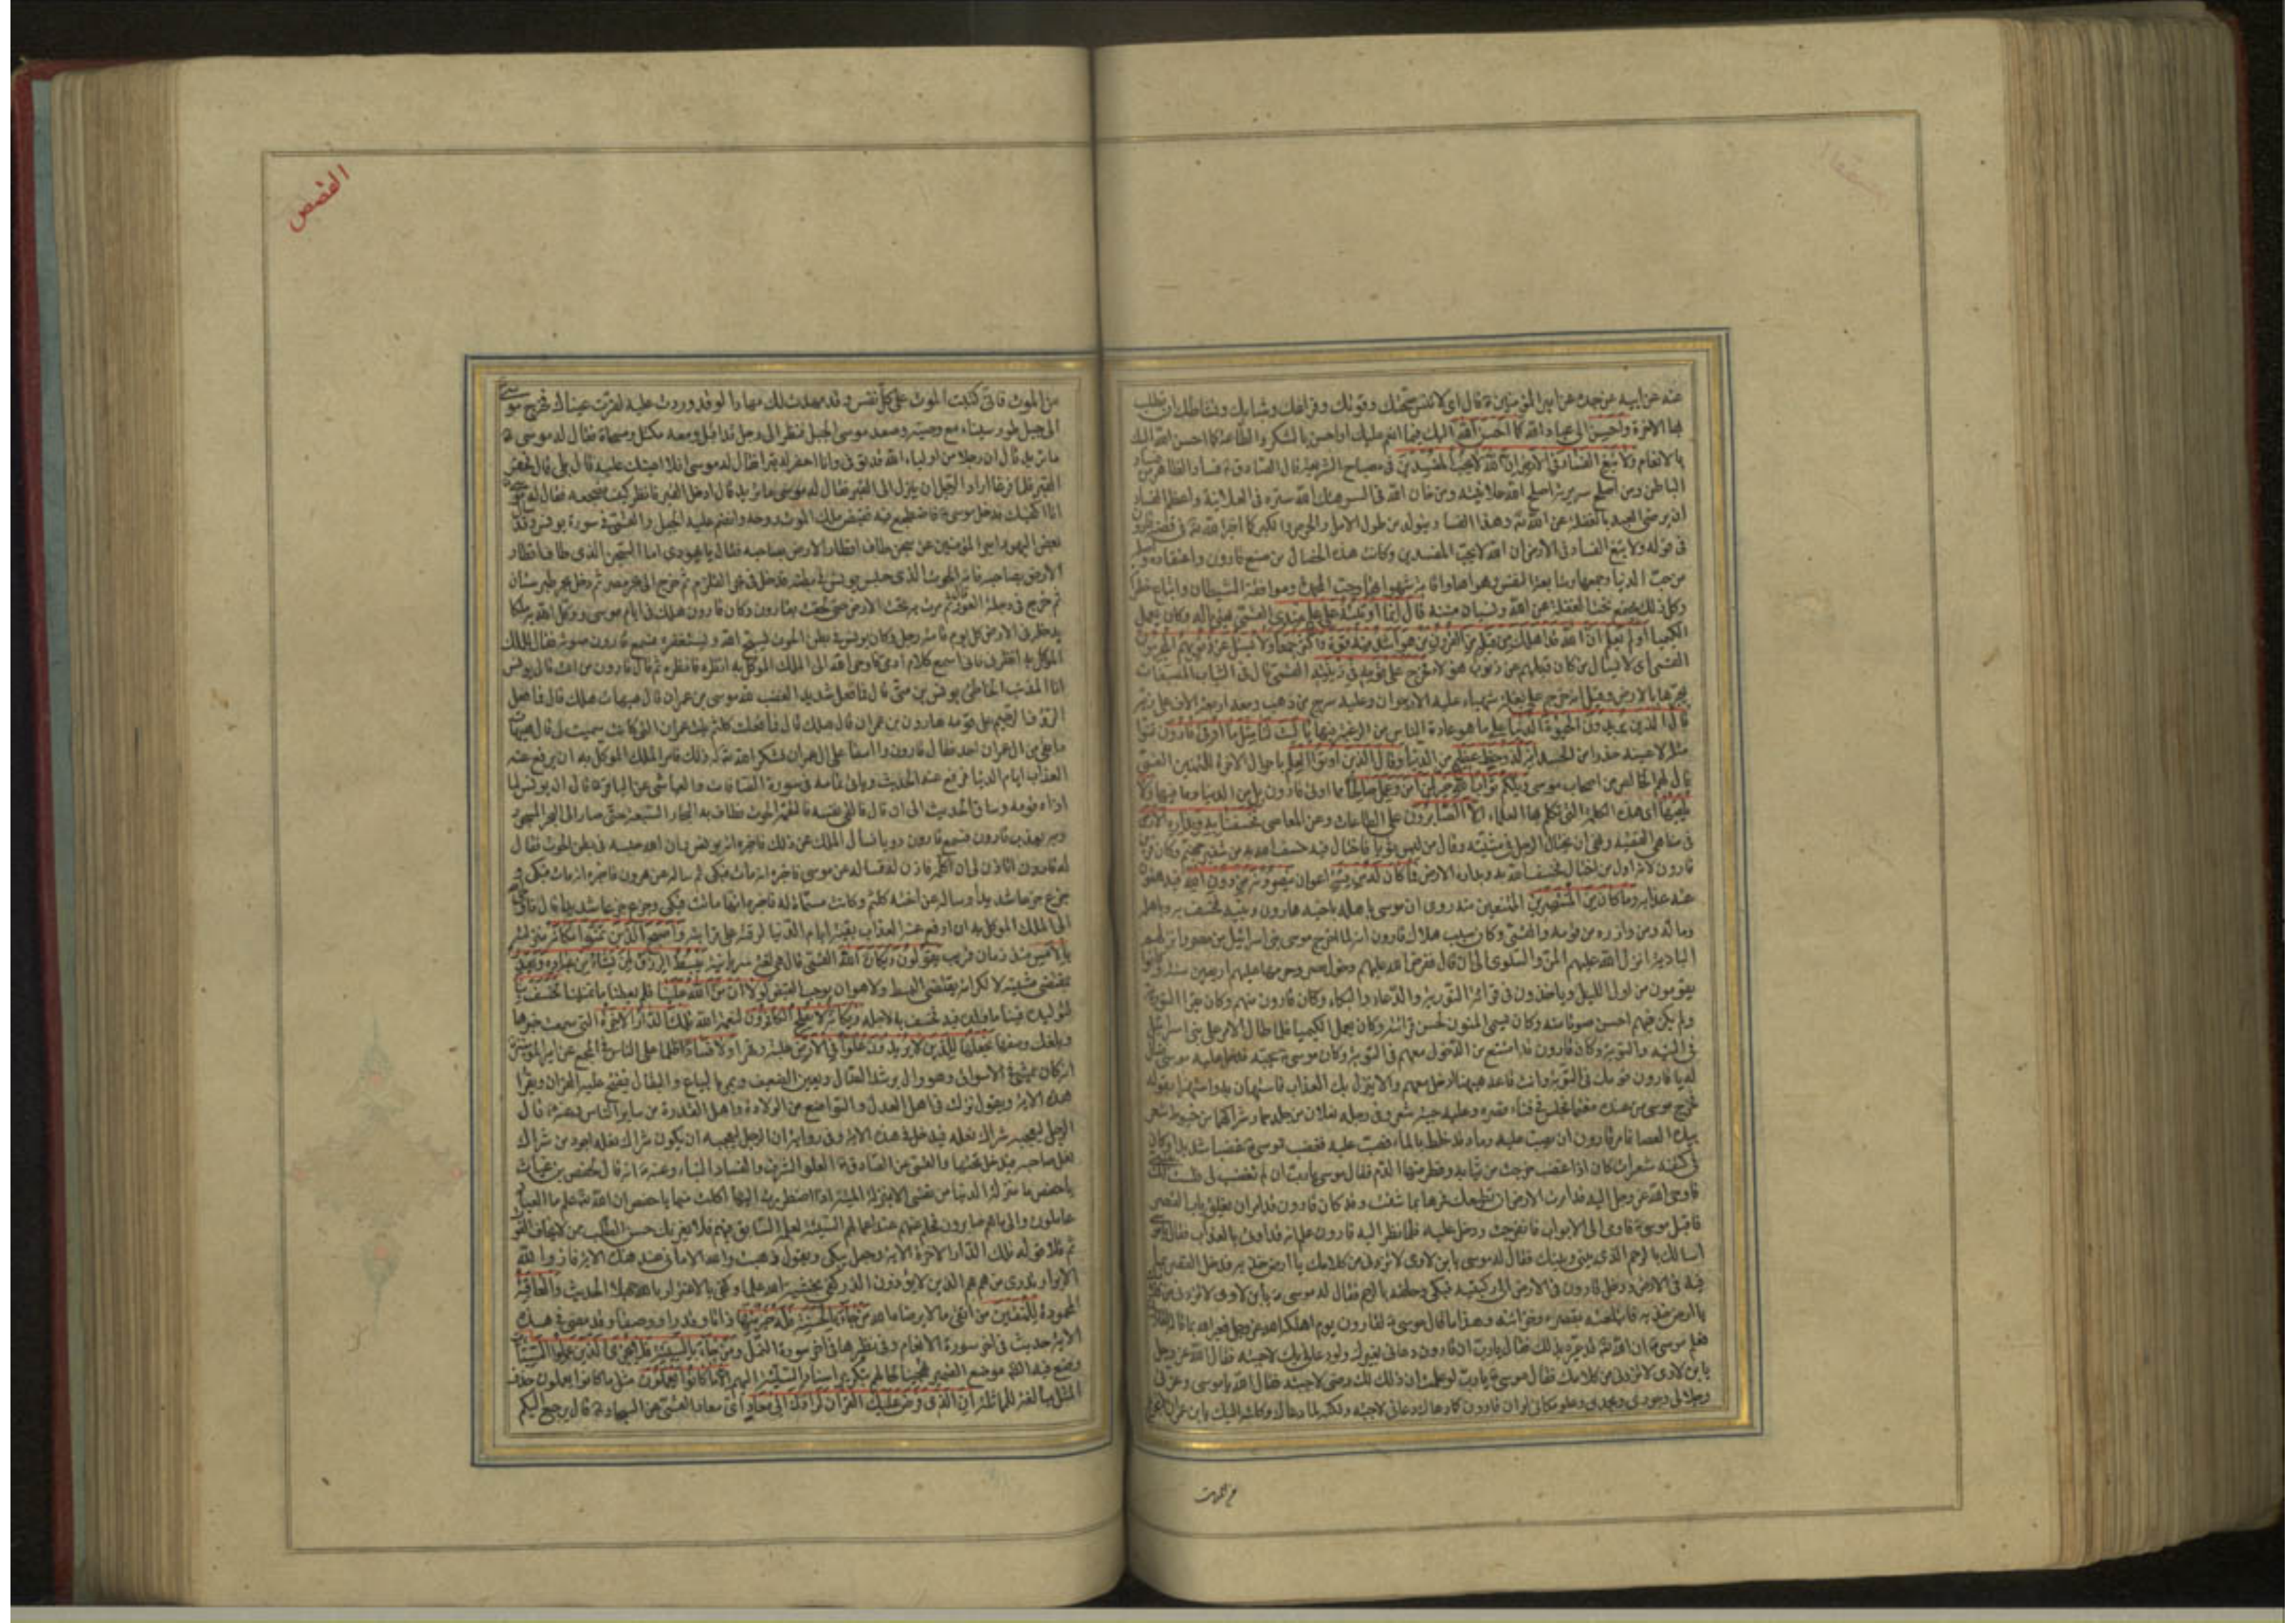 عنه عن ابيه عن جده عن امير المؤمنين ع قال اى لا تنس صحتك وقوتك وفراغك وشبابك ونشاطك ان تطلب
بها الاخرة واحسن الى عباد الله كما احسن الله اليك فيما انعم عليك او احسن بالشكر والطاعة كما احسن الله اليك
بالانعام ولا تبغ الفساد فى الارض ان الله لا يحب المفسدين فى مصباح الشريعة قال الصادق ع فساد الظاهر من فساد
الباطن ومن اصلح سريرته اصلح الله علانيته ومن خان الله فى السر هتك الله ستره فى العلانية واعظم الفساد
ان يرضى العبد بالغفلة عن الله وهذا الفساد يتولد من طول الامل والحرص والكبر كما اخبر الله فى قصة قارون
فى قوله ولا تبغ الفساد فى الارض ان الله لا يحب المفسدين وكانت هذه الخصال من صنع قارون واعتقاده واصلها
من حب الدنيا وجمعها ومتابعة النفس وهواها واقامة شهواتها وحب المحمدة وموافقة الشيطان واتباع خطراته
وكل ذلك مجتمع تحت الغفلة عن الله ونسيان مننه قال انما اوتيته على علم عندى القمى يعنى ماله وكان يعمل
الكيميا اولم يعلم ان الله قد اهلك من قبله من القرون من هو اشد منه قوة واكثر جمعا ولا يسئل عن ذنوبهم المجرمون
القمى اى لا يسال من كان قبلهم عن ذنوب هؤلاء فخرج على قومه فى زينته القمى قال فى الثياب المصبغات
يجرها بالارض وقيل انه خرج على بغلة شهباء عليه الارجوان وعليها سرج من ذهب ومعه اربعة الاف على زيه
قال الذين يريدون الحيوة الدنيا على ما هو عادة الناس من الرغبة فيها يا ليت لنا مثل ما اوتى قارون تمنوا
مثله لا عينه حذرا من الحسد انه لذو حظ عظيم من الدنيا وقال الذين اوتوا العلم باحوال الاخرة للمتمنين القمى
قال لهم الخالص من اصحاب موسى ويلكم ثواب الله خير لمن امن وعمل صالحا مما اوتى قارون بل من الدنيا وما فيها ولا
يلقيها اى هذه الكلمة التى تكلم بها العلماء الا الصابرون على الطاعات وعن المعاصى فخسفنا به وبداره الارض
فى مناهى الفقيه ونهى ان يختال الرجل فى مشيته وقال من لبس ثوبا فاختال فيه خسف الله به من شفير جهنم وكان قرين
قارون لانه اول من اختال فخسف الله به وبداره الارض فما كان له من فئة اعوان ينصرونه من دون الله فيدفعون
عنه عذابه وما كان من المنتصرين الممتنعين منه روى ان موسى باهله باخيه هارون وبنيه فخسف به وباهله
وماله ومن وازره من قومه والقمى وكان سبب هلاك قارون انه لما اخرج موسى بنى اسرائيل من مصر وانزلهم
البادية انزل الله عليهم المن والسلوى الى ان قال ففرض الله عليهم دخول مصر وحرمها عليهم اربعين سنة وكانوا
يقومون من اول الليل وياخذون فى قرائة التورية والدعاء والبكاء وكان قارون منهم وكان يقرا التورية
ولم يكن فيهم احسن صوتا منه وكان يسمى المنون لحسن قرائته وكان يعمل الكيميا فلما طال الامر على بنى اسرائيل
فى التيه والتوبة وكان قارون قد امتنع من الدخول معهم فى التوبة وكان موسى ع يحبه فدخل عليه موسى فقال
له يا قارون قومك فى التوبة وانت قاعد هيهنا ادخل معهم والا ينزل بك العذاب فاستهان به واستهزا بقوله
فخرج موسى من عنده مغتما فجلس فى فناء قصره وعليه جبة شعر وفى رجله نعلان من جلد حمار شراكهما من خيوط شعر
بيده العصا فامر قارون ان يصب عليه رماد قد خلط بالماء فصب عليه فغضب موسى ع غضبا شديدا وكان
فى كتفه شعرات كان اذا غضب خرجت من ثيابه وقطر منها الدم فقال موسى يا رب ان لم تغضب لى فلست لك بنبى
فاوحى الله عز وجل اليه قد امرت الارض ان تطيعك فمرها بما شئت وقد كان قارون قد امر ان يغلق باب القصر
فاقبل موسى ع فاومى الى الابواب فانفرجت ودخل عليه فلما نظر اليه قارون علم انه قد اوتى بالعذاب فقال يا موسى
اسالك بالرحم الذى بينى وبينك فقال له موسى يا ابن لاوى لا تزدنى من كلامك يا ارض خذيه فدخل القصر بما
فيه فى الارض ودخل قارون فى الارض الى ركبتيه فبكى وحلفه بالرحم فقال له موسى ع يا بن لاوى لا تزدنى من كلامك
يا ارض خذيه فابتلعته بقصره وخزائنه وهذا ما قال موسى ع لقارون يوم اهلكه الله عز وجل فعيره الله بما قاله لقارون
فعلم موسى ع ان الله قد عيره بذلك فقال يا رب ان قارون دعانى بغيرك ولو دعانى بك لاجبته فقال الله عز وجل
يا بن لاوى لا تزدنى من كلامك فقال موسى ع يا رب لو علمت ان ذلك لك رضى لاجبته فقال الله يا موسى وعزتى
وجلالى وجودى ومجدى وعلو مكانى لو ان قارون كما دعاك دعانى لاجبته ولكنه لما دعاك وكلته اليك يا بن عمران لا تجزع
من الموت
القصص
من الموت فانى كتبت الموت على كل نفس وقد مهدت لك مهادا لو قد وردت عليه لقرت عيناك فخرج موسى
الى جبل طور سيناء مع وصيه وصعد موسى الجبل فنظر الى رجل قد اقبل ومعه مكتل ومسحاة فقال له موسى ع
ما تريد قال ان رجلا من اولياء الله قد توفى وانا احفر له قبرا فقال له موسى افلا اعينك عليه قال بلى قال فحفرا
القبر فلما فرغا اراد الرجل ان ينزل الى القبر فقال له موسى ما تريد قال ادخل القبر فانظر كيف مضجعه فقال له موسى
انا اكفيك فدخل موسى ع فاضطجع فيه فقبض ملك الموت روحه وانضم عليه الجبل والقمى فى سورة يونس وقد سال
بعض اليهود امير المؤمنين عن سجن طاف اقطار الارض بصاحبه فقال يا يهودى اما السجن الذى طاف اقطار
الارض بصاحبه فانه الحوت الذى حبس يونس فى بطنه فدخل فى بحر القلزم ثم خرج الى بحر مصر ثم دخل بحر طبرستان
ثم خرج فى دجلة العوراء ثم مرت به تحت الارض حتى لحقت بقارون وكان قارون هلك فى ايام موسى ووكل الله به ملكا
يدخله فى الارض كل يوم قامة رجل وكان يونس فى بطن الحوت يسبح الله ويستغفره فسمع قارون صوته فقال للملك
الموكل به انظرنى فانى اسمع كلام ادمى فاوحى الله الى الملك الموكل به انظره فانظره ثم قال قارون من انت قال يونس
انا المذنب الخاطئ يونس بن متى قال فما فعل شديد الغضب لله موسى بن عمران قال هيهات هلك قال فما فعل
الرؤف الرحيم على قومه هارون بن عمران قال هلك قال فما فعلت كلثم بنت عمران التى كانت سميت لى قال هيهات
ما بقى من ال عمران احد فقال قارون وا اسفا على ال عمران فشكر الله له ذلك فامر الملك الموكل به ان يرفع عنه
العذاب ايام الدنيا فرفع عنه الحديث وياتى تمامه فى سورة الصافات والعياشى عن الباقر ع قال ان يونس لما
اذاه قومه وساق الحديث الى ان قال فالقى نفسه فالتقمه الحوت فطاف به البحار السبعة حتى صار الى البحر المسجور
وبه يعذب قارون فسمع قارون دويا فسال الملك عن ذلك فاخبره انه يونس وان الله حبسه فى بطن الحوت فقال
له قارون اتاذن لى ان اكلمه فاذن له فساله عن موسى فاخبره انه مات فبكى ثم ساله عن هرون فاخبره انه مات فبكى و
جزع جزعا شديدا وساله عن اخته كلثم وكانت مسماة له فاخبره انها ماتت فبكى وجزع جزعا شديدا قال فاوحى الله
الى الملك الموكل به ان ارفع عنه العذاب بقية ايام الدنيا لرقته على قرابته واصبح الذين تمنوا مكانه منزلته
بالامس منذ زمان قريب يقولون ويكان الله القمى قال هى لغة سريانية يبسط الرزق لمن يشاء من عباده ويقدر
بمقتضى مشيته لا لكرامة تقتضى البسط ولا هوان يوجب القبض لولا ان من الله علينا فلم يعطنا ما تمنينا لخسف بنا
لتوليده فينا ما ولده فيه فخسف به لاجله ويكانه لا يفلح الكافرون لنعمة الله تلك الدار الاخرة التى سمعت خبرها
وبلغك وصفها نجعلها للذين لا يريدون علوا فى الارض غلبة وقهرا ولا فسادا ظلما على الناس فى المجمع عن امير المؤمنين ع
انه كان يمشى فى الاسواق وهو وال يرشد الضال ويعين الضعيف ويمر بالبياع والبقال فيفتح عليه القران ويقرا
هذه الاية ويقول نزلت فى اهل العدل والتواضع من الولاة واهل القدرة من ساير الناس وعنه ع قال
الرجل ليعجبه شراك نعله فيدخل فى هذه الاية وفى رواية ان الرجل ليعجبه ان يكون شراك نعله اجود من شراك
نعل صاحبه فيدخل تحتها والقمى عن الصادق ع العلو الشرف والفساد البناء وعنه ع انه قال لحفص بن غياث
يا حفص ما منزلة الدنيا من نفسى الا بمنزلة الميتة اذا اضطررت اليها اكلت منها يا حفص ان الله علم ما العباد
عاملون والى ما هم صايرون فحلم عنهم عند اعمالهم السيئة لعلمه السابق فيهم فلا يغرنك حسن الطلب ممن لا يخاف الفوت
ثم تلا قوله تلك الدار الاخرة الاية وجعل يبكى ويقول ذهبت والله الامانى عند هذه الاية فاز والله
الابرار تدرى من هم هم الذين لا يؤذون الذر كفى بخشية الله علما وكفى بالاغترار بالله جهلا الحديث والعاقبة
المحمودة للمتقين من اتقى ما لا يرضاه الله من جاء بالحسنة فله خير منها ذاتا وقدرا ووصفا وقد مضى فى هذه
الاية حديث فى اخر سورة الانعام وفى نظيرها فى اخر سورة النمل ومن جاء بالسيئة فلا يجزى الذين عملوا السيئات
وضع فيه الظاهر موضع الضمير تهجينا لحالهم بتكرير اسناد السيئة اليهم الا ما كانوا يعملون مثل ما كانوا يعملون حذف
المثل مبالغة للمماثلة ان الذى فرض عليك القران لرادك الى معاد اى معاد القمى عن السجاد ع قال يرجع اليكم